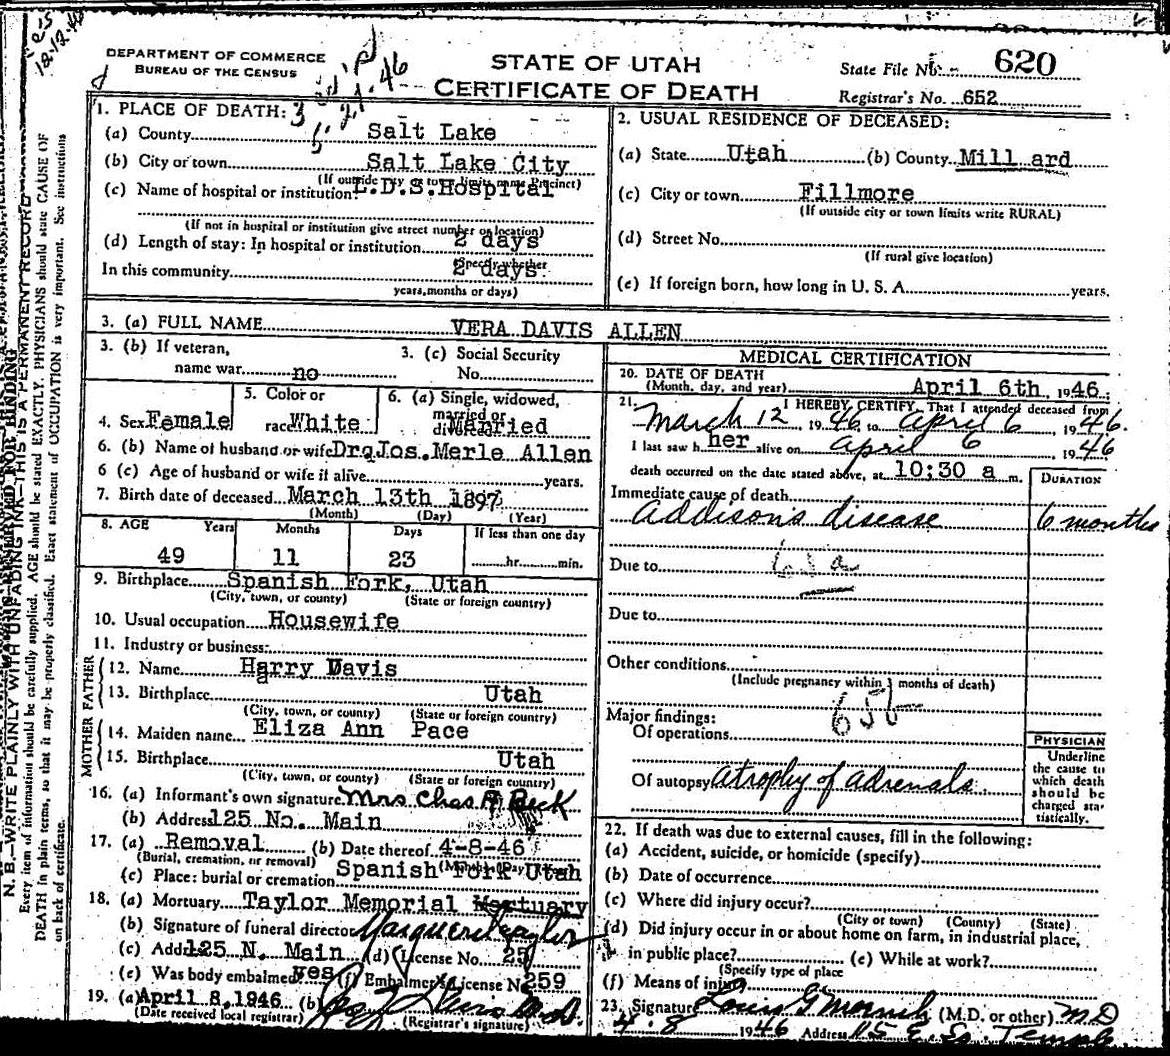 DEPARTMENT OF COMMERCE
BUREAU OF THE CENSUS
STATE OF UTAH
CERTIFICATE OF DEATH
State File No. 620
Registrar's No. 652
1. PLACE OF DEATH:
(a) County Salt Lake
(b) City or town Salt Lake City
(c) Name of hospital or institution: L.D.S.Hospital
(If not in hospital or institution give street number or location)
(d) Length of stay: In hospital or institution 2 days
(Specify whether
In this community 2 days
years, months or days)
2. USUAL RESIDENCE OF DECEASED:
(a) State Utah (b) County Mill ard
(c) City or town Fillmore
(If outside city or town limits write RURAL)
(d) Street No.
(If rural give location)
(e) If foreign born, how long in U. S. A. years.
3. (a) FULL NAME VERA DAVIS ALLEN
3. (b) If veteran,
name war no
3. (c) Social Security
No.
4. Sex Female
5. Color or
race White
6. (a) Single, widowed,
married or
divorced Married
6. (b) Name of husband or wife Dr. Jos. Merle Allen
6 (c) Age of husband or wife if alive years.
7. Birth date of deceased March 13th 1897
(Month) (Day) (Year)
8. AGE Years Months Days If less than one day
49 11 23 hr. min.
9. Birthplace Spanish Fork, Utah
(City, town, or county) (State or foreign country)
10. Usual occupation Housewife
11. Industry or business:
FATHER
12. Name Harry Davis
13. Birthplace Utah
(City, town, or county) (State or foreign country)
MOTHER
14. Maiden name Eliza Ann Pace
15. Birthplace Utah
(City, town, or county) (State or foreign country)
16. (a) Informant's own signature Mrs. Chas
(b) Address 125 No. Main
17. (a) Removal (b) Date thereof 4-8-46
(Burial, cremation, or removal)
(c) Place: burial or cremation Spanish Fork Utah
18. (a) Mortuary Taylor Memorial Mortuary
(b) Signature of funeral director Marguerite Taylor
(c) Add 125 N. Main (d) License No. 25
(e) Was body embalmed yes (f) Embalmer's License No 259
19. (a) April 8, 1946 (b)
(Date received local registrar) (Registrar's signature)
MEDICAL CERTIFICATION
20. DATE OF DEATH
(Month, day, and year) April 6th, 1946.
21. I HEREBY CERTIFY, That I attended deceased from
March 12, 1946 to April 6, 1946.
I last saw her alive on April 6 1946
death occurred on the date stated above, at 10;30 a m.
DURATION
Immediate cause of death
Addison's disease 6 months
Due to
Due to
Other conditions
(Include pregnancy within 3 months of death)
Major findings:
Of operations
Of autopsy atrophy of adrenals.
PHYSICIAN
Underline
the cause to
which death
should be
charged sta-
tistically.
22. If death was due to external causes, fill in the following:
(a) Accident, suicide, or homicide (specify)
(b) Date of occurrence
(c) Where did injury occur?
(City or town) (County) (State)
(d) Did injury occur in or about home on farm, in industrial place,
in public place? (e) While at work?
(Specify type of place
(f) Means of injury
23. Signature Louis G Moench (M.D. or other) MD
4-8 1946 Address 115 E. So. Temple
N. B.—WRITE PLAINLY WITH UNFADING INK—THIS IS A PERMANENT RECORD
Every item of information should be carefully supplied. AGE should be stated EXACTLY. PHYSICIANS should state CAUSE OF
DEATH in plain terms, so that it may be properly classified. Exact statement of OCCUPATION is very important. See instructions
on back of certificate.